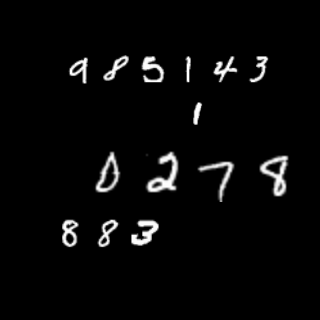 985143
1
0278
883